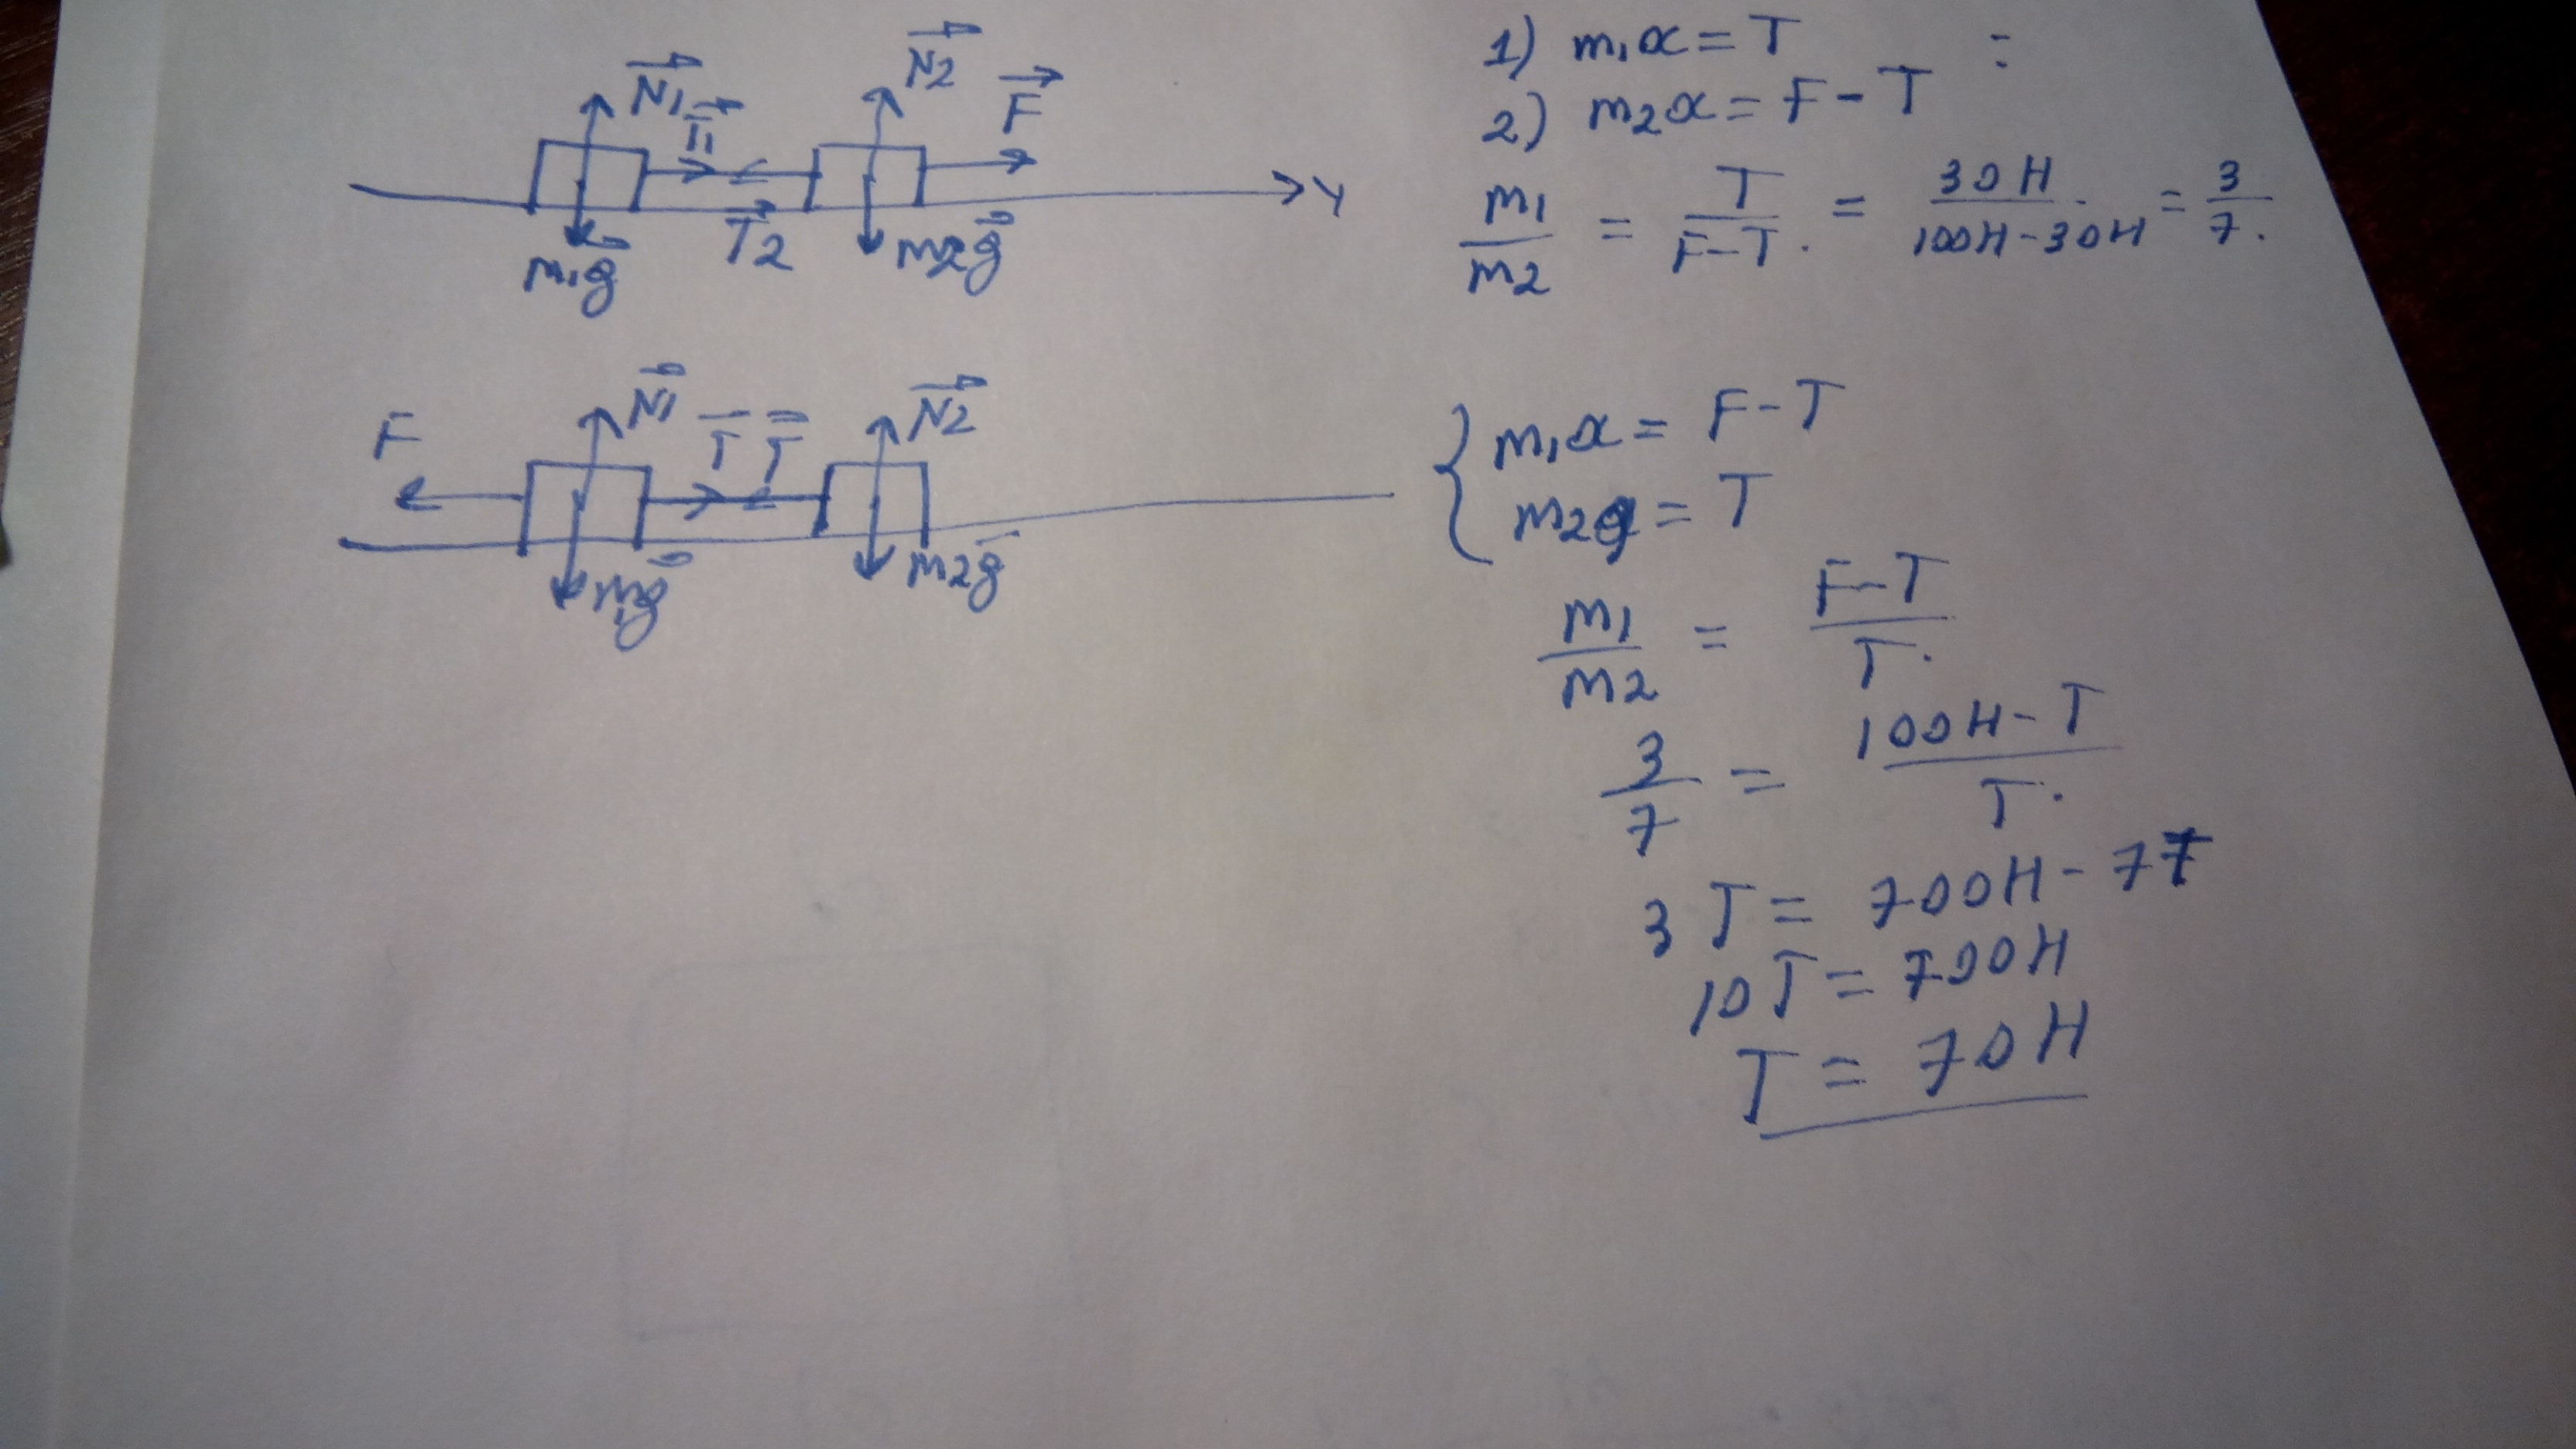 N1 N2
T1 F
T2 Y
m1g m2g
1) m1a = T :
2) m2a = F - T
m1/m2 = T/F-T. = 30H/100H-30H = 3/7.
F N1 T T N2
m1g m2g
m1a = F - T
m2a = T
m1/m2 = F-T/T.
3/7 = 100H-T/T.
3T = 700H - 7T
10T = 700H
T = 70H